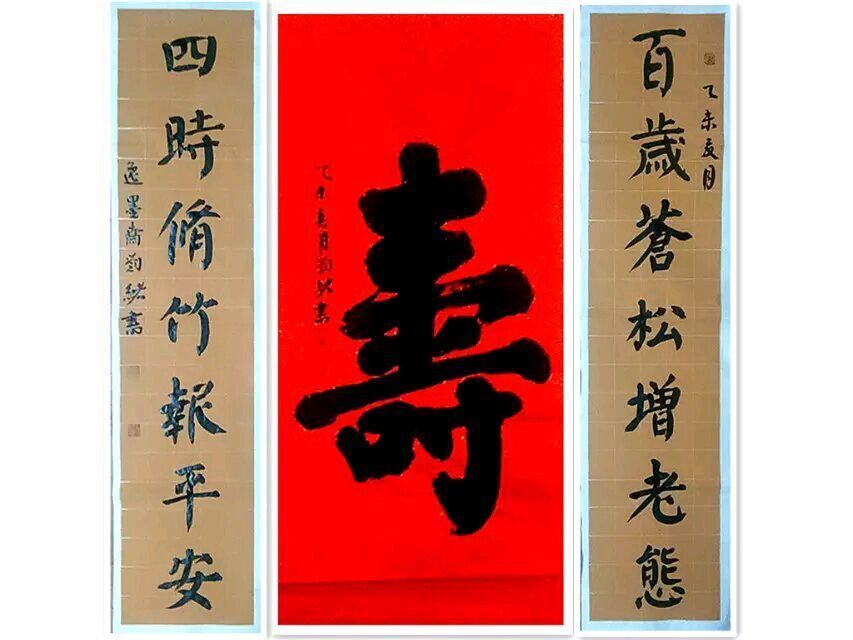 百歲蒼松增老態
乙未夏月
壽
乙未夏月刘書
四時脩竹報平安
逸墨齋刘書